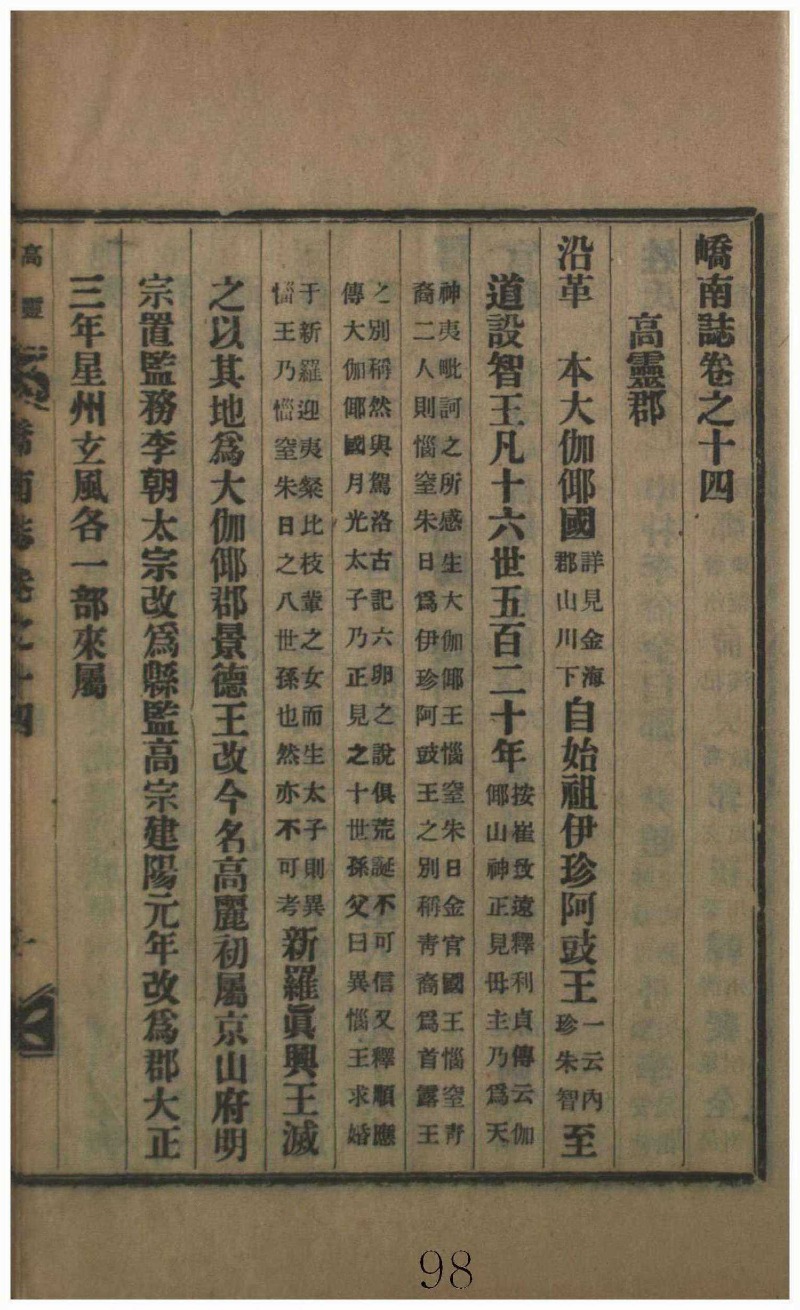 嶠南誌卷之十四
高靈郡
沿革 本大伽倻國詳見金海郡山川下自始祖伊珍阿豉王一云內珍朱智至
道設智王凡十六世五百二十年按崔致遠釋利貞傳云伽倻山神正見母主乃爲天
神夷毗訶之所感生大伽倻王惱窒朱日金官國王惱窒靑
裔二人則惱窒朱日爲伊珍阿豉王之別稱靑裔爲首露王
之別稱然與駕洛古記六卵之說俱荒誕不可信又釋順應
傳大伽倻國月光太子乃正見之十世孫父曰異惱王求婚
于新羅迎夷粲比枝輩之女而生太子則異
惱王乃惱窒朱日之八世孫也然亦不可考新羅眞興王滅
之以其地爲大伽倻郡景德王改今名高麗初屬京山府明
宗置監務李朝太宗改爲縣監高宗建陽元年改爲郡大正
三年星州玄風各一部來屬
高靈 嶠南誌卷之十四 一
98